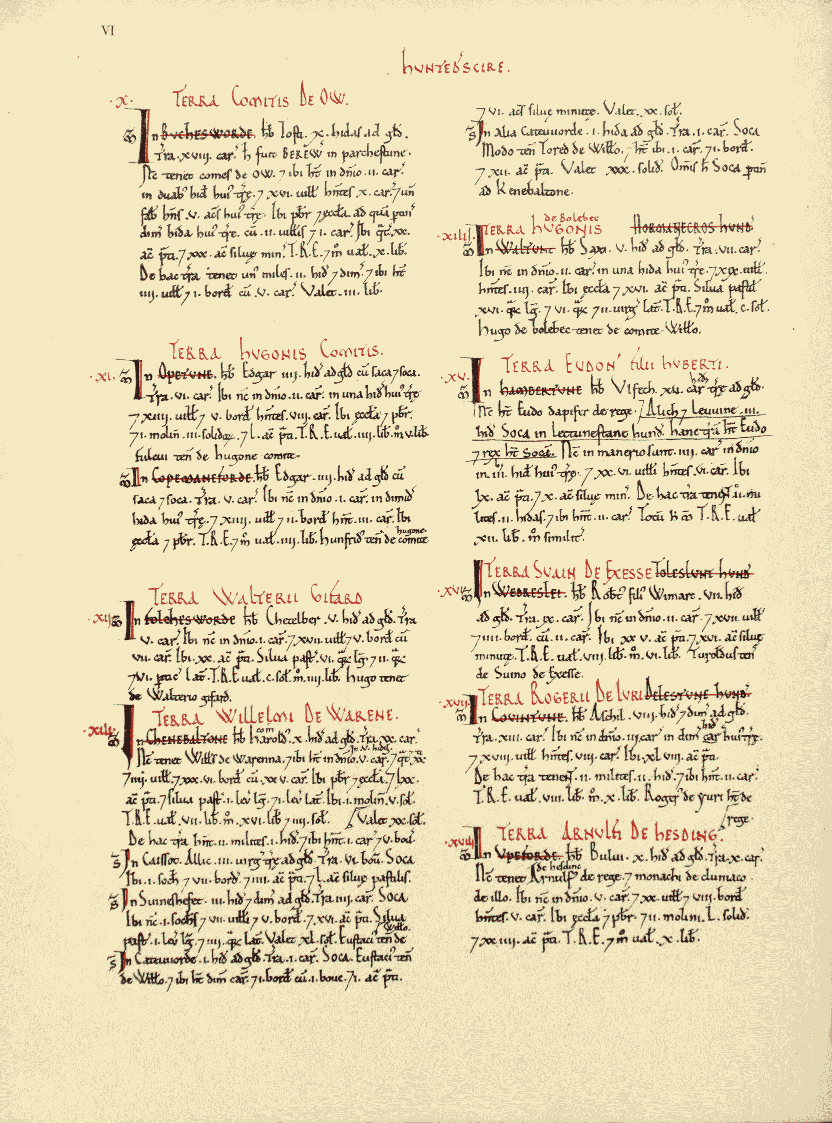 VI
HUNTED'SCIRE.
.X. TERRA COMITIS DE OW.
ᵯ In BUCHESWORDE. ħb Tosti .x. hidas. ad gld̄.
Tr̄a .xviii. car̄. H̄ fuit BEREW in parchestune.
Nc̄ tenet comes de OW. 7 ibi ht̄ in dn̄io .ii. car̄
in duab' hid' hui' tr̄ę. 7 xvi. uill̄i hn̄tes .x. car̄. 7 un'
fab̄ hn̄s .v. ac̄s hui' tr̄ę. Ibi pb̄r 7 ęccla. ad quā ptin'
dim' hida hui' tr̄ę. cū .ii. uill̄is 7 i. car̄. Ibi qt̄. xx.
ac̄ p̄ti. 7 xxx. ac̄ siluę min'. T.R.E. 7 m̊ ual̄ .x. lib̄.
De hac tr̄a tenet un' miles .ii. hid' 7 dim'. 7 ibi ht̄
iii. uill̄ 7 i. bord̄ cū .v. car̄. Valet .iii. lib̄.
TERRA HUGONIS COMITIS.
.XI. ᵯ In OPETUNE. ħb Edgar .iiii. hid' ad gld̄ cū saca 7 soca.
Tr̄a .vi. car̄. Ibi nc̄ in dn̄io .ii. car̄. in una hid' hui' tr̄ę
7 xiiii. uill̄i 7 v. bord̄ hn̄tes .viii. car̄. Ibi ęccla 7 pb̄r.
7 i. molin' .iii. solidoꝝ. 7 L. ac̄ p̄ti. T.R.E. ual̄ .iiii. lib̄. m̊ .v. lib̄.
fulcui ten' de hugone comite.
ᵯ In COPEMANEFORDE. ħb Edgar .iiii. hid' ad gld̄ cū
saca 7 soca. Tr̄a .v. car̄. Ibi nc̄ in dn̄io .i. car̄. in dimid'
hida hui' tr̄ę. 7 xiiii. uill̄i 7 ii. bord̄ hn̄t .iii. car̄. Ibi
ęccla 7 pb̄r. T.R.E. 7 m̊ ual̄ .iiii. lib̄. hunfrid' ten' de hugone comite
TERRA WALTERII GIFARD
.XII. ᵯ In FOLCHESWORDE ħb Chetelber .v. hid' ad gld̄. Tr̄a
v. car̄. Ibi nc̄ in dn̄io .i. car̄. 7 xvii. uill̄i 7 v. bord̄ cū
vii. car̄. Ibi .xx. ac̄ p̄ti. Silua past̄. vi. qr̄ lḡ. 7 ii. qr̄
7 vi. ptic̄ lat̄. T.R.E. ual̄ .c. sol̄. m̊ .iiii. lib̄. Hugo tenet
de Walterio gifard.
TERRA WILLELMI DE WARENE.
.XIII. ᵯ In CHENEBALTONE ħb harold' com̄ .x. hid' ad gld̄. Tr̄a .xx. car̄.
Nc̄ tenet Will's de Warenna. 7 ibi ht̄ in dn̄io .v. car̄ in .v. hid'. 7 qt̄. xx
7 iiii. uill̄i. 7 xxx. vi. bord̄ cū xx v. car̄. Ibi pb̄r 7 ęccla. 7 Lxx.
ac̄ p̄ti. 7 silua past̄. i. leu' lḡ. 7 i. leu' lat̄. Ibi .i. molin'. v. sol̄.
T.R.E. ual̄ .vii. lib̄. m̊ .x. lib̄ 7 iiii. sol̄. Valet .xx. sol̄.
De hac tr̄a hn̄t .ii. milites .i. hid'. 7 ibi hn̄t .i. car̄ 7 v. bou'.
S̄ In Caissot. Allic .iii. uirg' tr̄ę ad gld̄. Tr̄a .vi. bou'. Soca
Ibi .i. soch̄ 7 vii. bord̄. 7 iiii. ac̄ p̄ti. 7 L. ac̄ siluę pastilis.
S̄ In Suineshefet .iii. hid' 7 dim' ad gld̄. Tr̄a .iiii. car̄. SOCA
Ibi nc̄ .i. sochs̄ 7 vii. uill̄i 7 v. bord̄. 7 xvi. ac̄ p̄ti. Silua
past̄ .i. leu' lḡ. 7 iiii. qr̄ lat̄. Valet xl sol̄. Eustaci' ten' de Will̄o.
S̄ In Cateuuorde .i. hid' ad gld̄. Tr̄a .i. car̄. SOCA. Eustaci' ten'
de Will̄o. 7 ibi ht̄ dim' car̄. 7 i. bord̄ cū .i. boue. 7 i. ac̄ p̄ti.
7 vi. ac̄s siluę minutę. Valet .xx. sol̄.
S̄ In Alia Cateuuorde .i. hida ad gld̄. Tr̄a .i. car̄. Soca
Modo ten' Tored de Will̄o. 7 ht̄ ibi .i. car̄. 7 i. bord̄.
7 xii. ac̄ p̄ti. Valet xxx. solid'. Om̄is h̄ Soca ptin'
ad Kenebaltone.
.XIIII. TERRA HUGONIS de Bolebec HORMANECROS HUND'
ᵯ In WALTUNE ħb Saxi .v. hid' ad gld̄. Tr̄a .vii. car̄.
Ibi nc̄ in dn̄io .ii. car̄ in una hida hui' tr̄ę. 7 xix. uill̄i
hn̄tes .iii. car̄. Ibi ęccla 7 xvi. ac̄ p̄ti. Silua pastil̄
xvi. qr̄ lḡ. 7 vi. qr̄ 7 ii. uirg' lat̄. T.R.E. 7 m̊ ual̄ .c. sol̄.
Hugo de bolebec tenet de comite Will̄o.
.XV. TERRA EUDON' filii HUBERTI.
ᵯ In HAMBERTUNE ħb Vlfech .xv. hid' car̄ tr̄ę ad gld̄.
Nc̄ ht̄ Eudo dapifer de rege. Aluch 7 Leuuine .iii.
hid' Soca in Lectunestane hund'. hanc tr̄ā ht̄ Eudo
7 rex ht̄ socā. Nc̄ in manerio sunt .iiii. car̄ in dn̄io
in .iii. hid' hui' tr̄ę. 7 xx. vi. uill̄i hn̄tes .vi. car̄. Ibi
lx. ac̄ p̄ti. 7 x. ac̄ siluę min'. De hac tr̄a teneꝫ .ii. mi
lites .ii. hidas. 7 ibi hn̄t .ii. car̄. Totū h̄ m̄ T.R.E. ual̄
xii. lib̄. m̊ similit'.
.XVI. TERRA SUAIN DE EXESSE TOLESLUNT HUND'
ᵯ In WEDRESLEI. ħb Robt' fili' Wimarc .vii. hid'
ad gld̄. Tr̄a .ix. car̄. Ibi nc̄ in dn̄io .ii. car̄. 7 xvii. uill̄i
7 iiii. bord̄. cū .ii. car̄. Ibi xx v. ac̄ p̄ti. 7 xvi. ac̄ siluę
minutę. T.R.E. ual̄ .viii. lib̄. m̊ .vi. lib̄. Turoldus ten'
de Suino de Exesse.
.XVII. TERRA ROGERII DE IURI DELESTUNE HUND'
ᵯ In COUINTUNE. ħb Aschil .viii. hid' 7 dim' ad gld̄.
Tr̄a .xii. car̄. Ibi nc̄ in dn̄io .iii. car̄ in dim' hid' car̄ hui' tr̄ę.
7 xviii. uill̄i hn̄tes .viii. car̄. Ibi xl viii. ac̄ p̄ti.
De hac tr̄a teneꝫ .ii. milites .ii. hid'. 7 ibi hn̄t .ii. car̄.
T.R.E. ual̄ .viii. lib̄. m̊ .x. lib̄. Roger' de yuri ht̄ de
rege.
.XVIII. TERRA ARNULFI DE HESDING.
ᵯ In UPEFORDE. ħb Bului .x. hid' ad gld̄. Tr̄a .x. car̄.
Nc̄ tenet Arnulf' de hesdinc de rege. 7 monachi de cluniaco
de illo. Ibi nc̄ in dn̄io .v. car̄. 7 xx. uill̄i 7 viii. bord̄
hn̄tes .v. car̄. Ibi ęccla 7 pb̄r. 7 ii. molini .L. solid'.
7 xx iiii. ac̄ p̄ti. T.R.E. 7 m̊ ual̄ .x. lib̄.